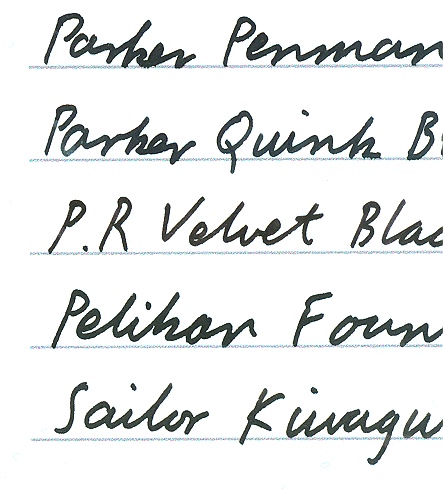 Parker Penman
Parker Quink B
P.R Velvet Blac
Pelikan Foun
Sailor Kiwagu